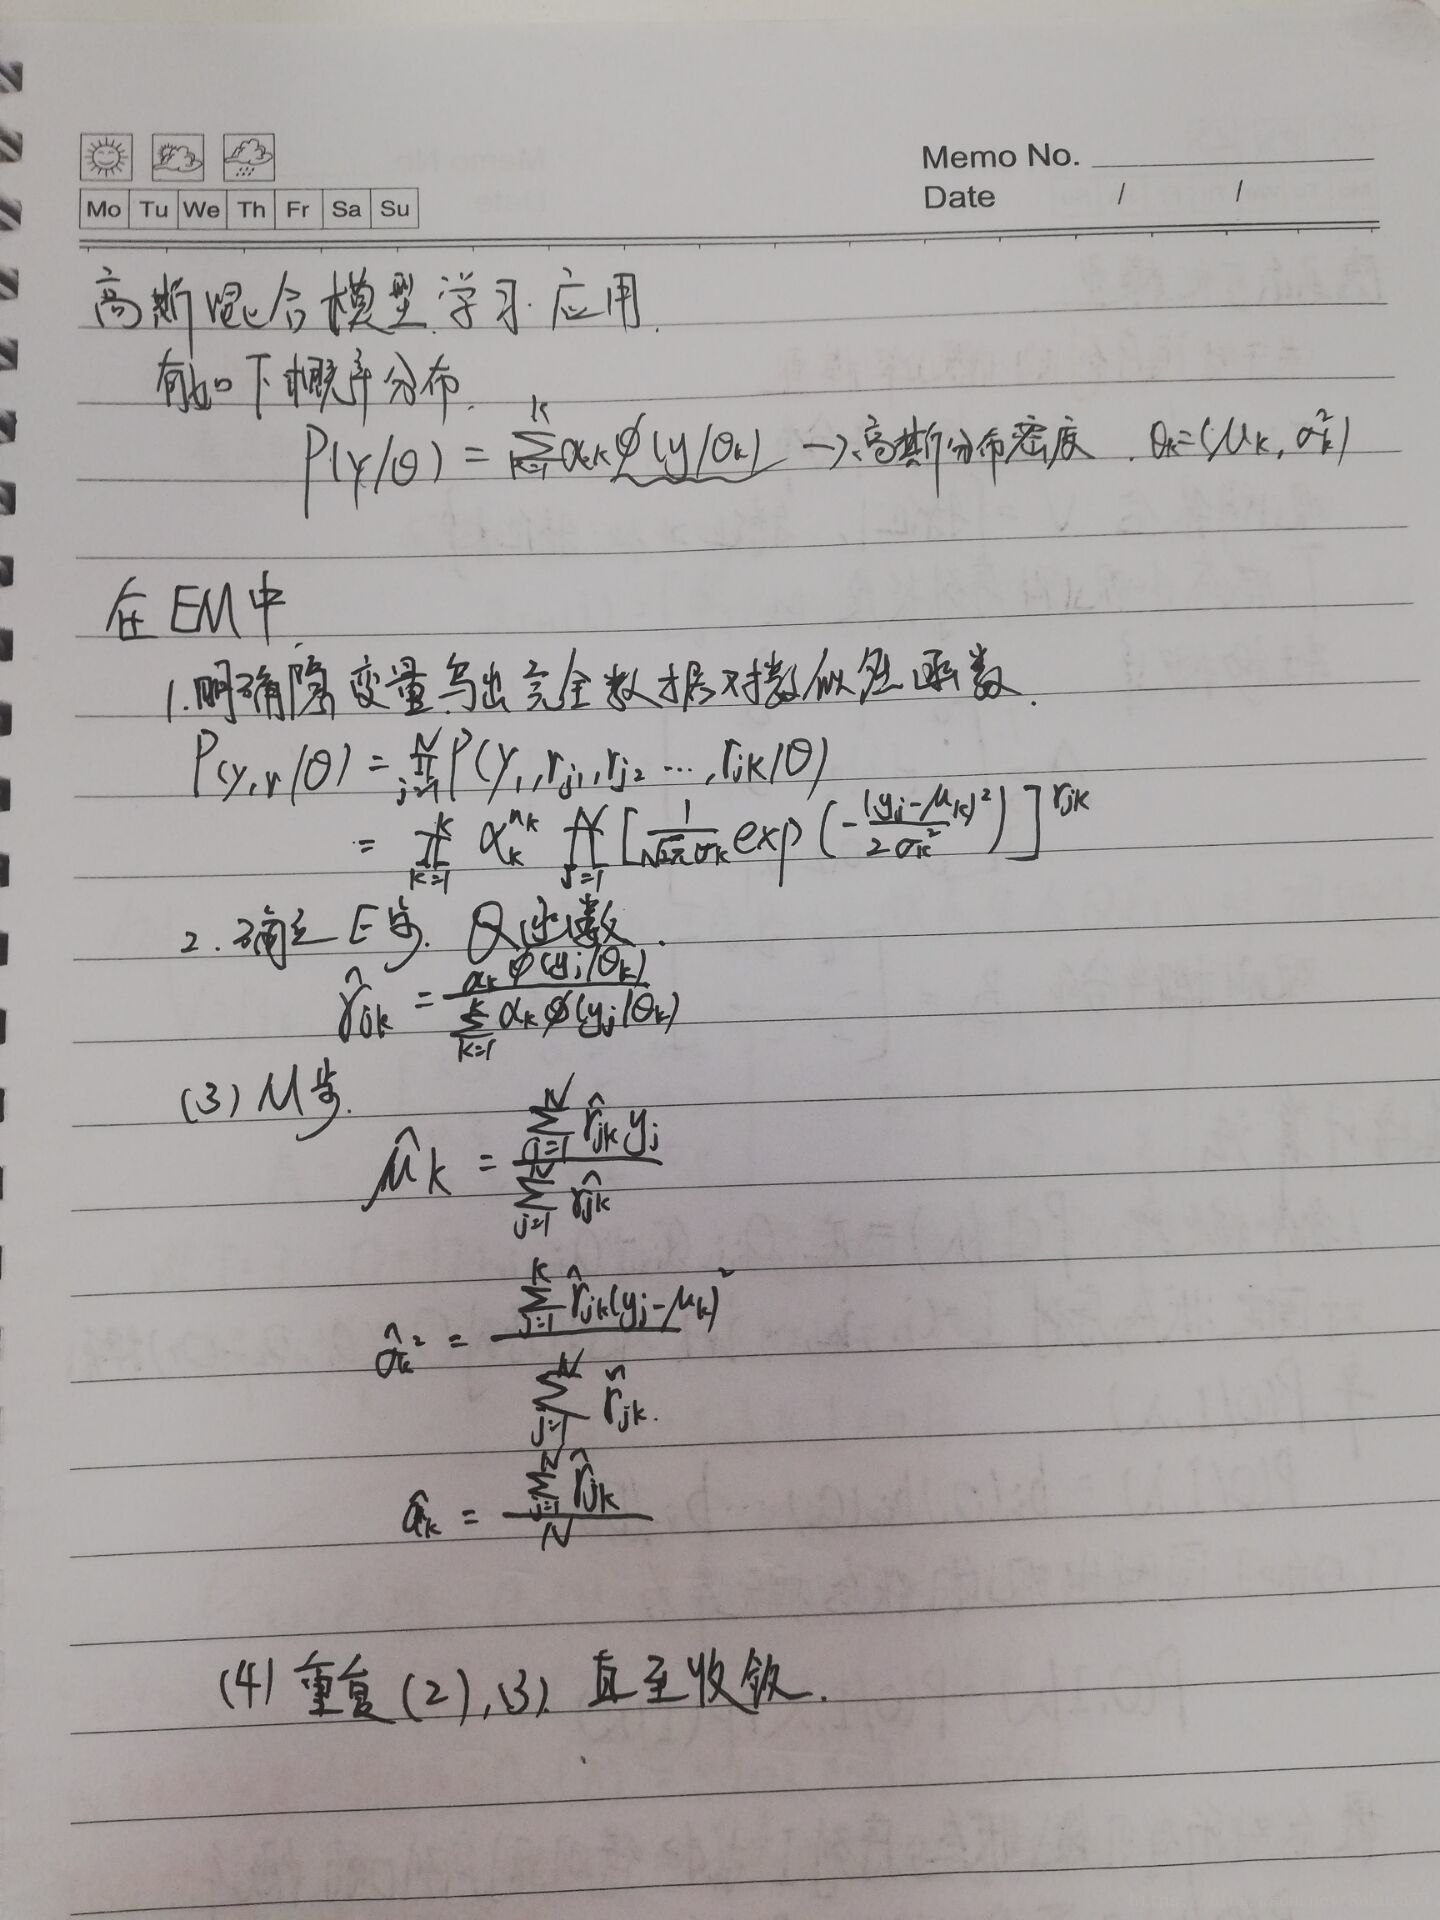 Memo No.
Mo Tu We Th Fr Sa Su
Date / /
高斯混合模型学习.应用.
有如下概率分布.
P(y/θ) = ∑_{k=1}^{K} α_k φ(y/θ_k) → 高斯分布密度. θ_k=(μ_k, σ_k^2)
在EM中
1.明确隐变量写出完全数据对数似然函数.
P(y,r/θ) = ∏_{j=1}^{N} P(y_1,r_{j1},r_{j2}...,r_{jk}/θ)
= ∏_{k=1}^{K} α_k^{n_k} ∏_{j=1}^{N} [1/(√2π σ_k) exp(-(y_j-μ_k)^2/(2σ_k^2))]^{r_{jk}}
2.确定E步. Q函数.
r̂_{jk} = α_k φ(y_j/θ_k) / ∑_{k=1}^{K} α_k φ(y_j/θ_k)
(3) M步.
μ̂_k = ∑_{j=1}^{N} r̂_{jk} y_j / ∑_{j=1}^{N} r̂_{jk}
σ̂_k^2 = ∑_{j=1}^{K} r̂_{jk}(y_j-μ_k)^2 / ∑_{j=1}^{N} r̂_{jk}.
α̂_k = ∑_{j=1}^{N} r̂_{jk} / N
(4) 重复(2),(3).直至收敛.